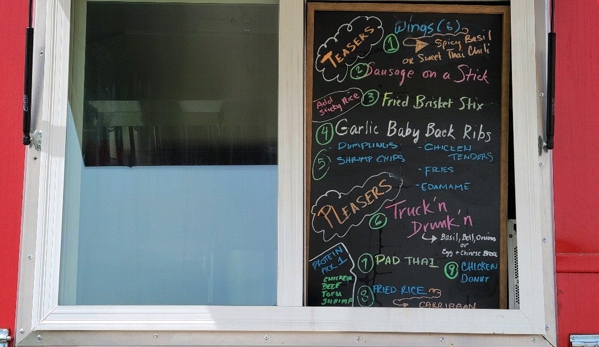 TEASERS
① Wings (6)
Spicy Basil
or Sweet Thai Chili
② Sausage on a Stick
Add
Sticky Rice
③ Fried Brisket Stix
④ Garlic Baby Back Ribs
⑤ DUMPLINGS
SHRIMP CHIPS
- CHICKEN
TENDERS
- FRIES
- EDAMAME
PLEASERS
⑥ Truck'n
Drunk'n
Basil, Bell, Onions
or
Egg + Chinese Broc
PROTEIN
PICK 1
CHICKEN
BEEF
TOFU
SHRIMP
⑦ PAD THAI
⑧ FRIED RICE
CARRIBEAN
⑨ CHICKEN
DONUT